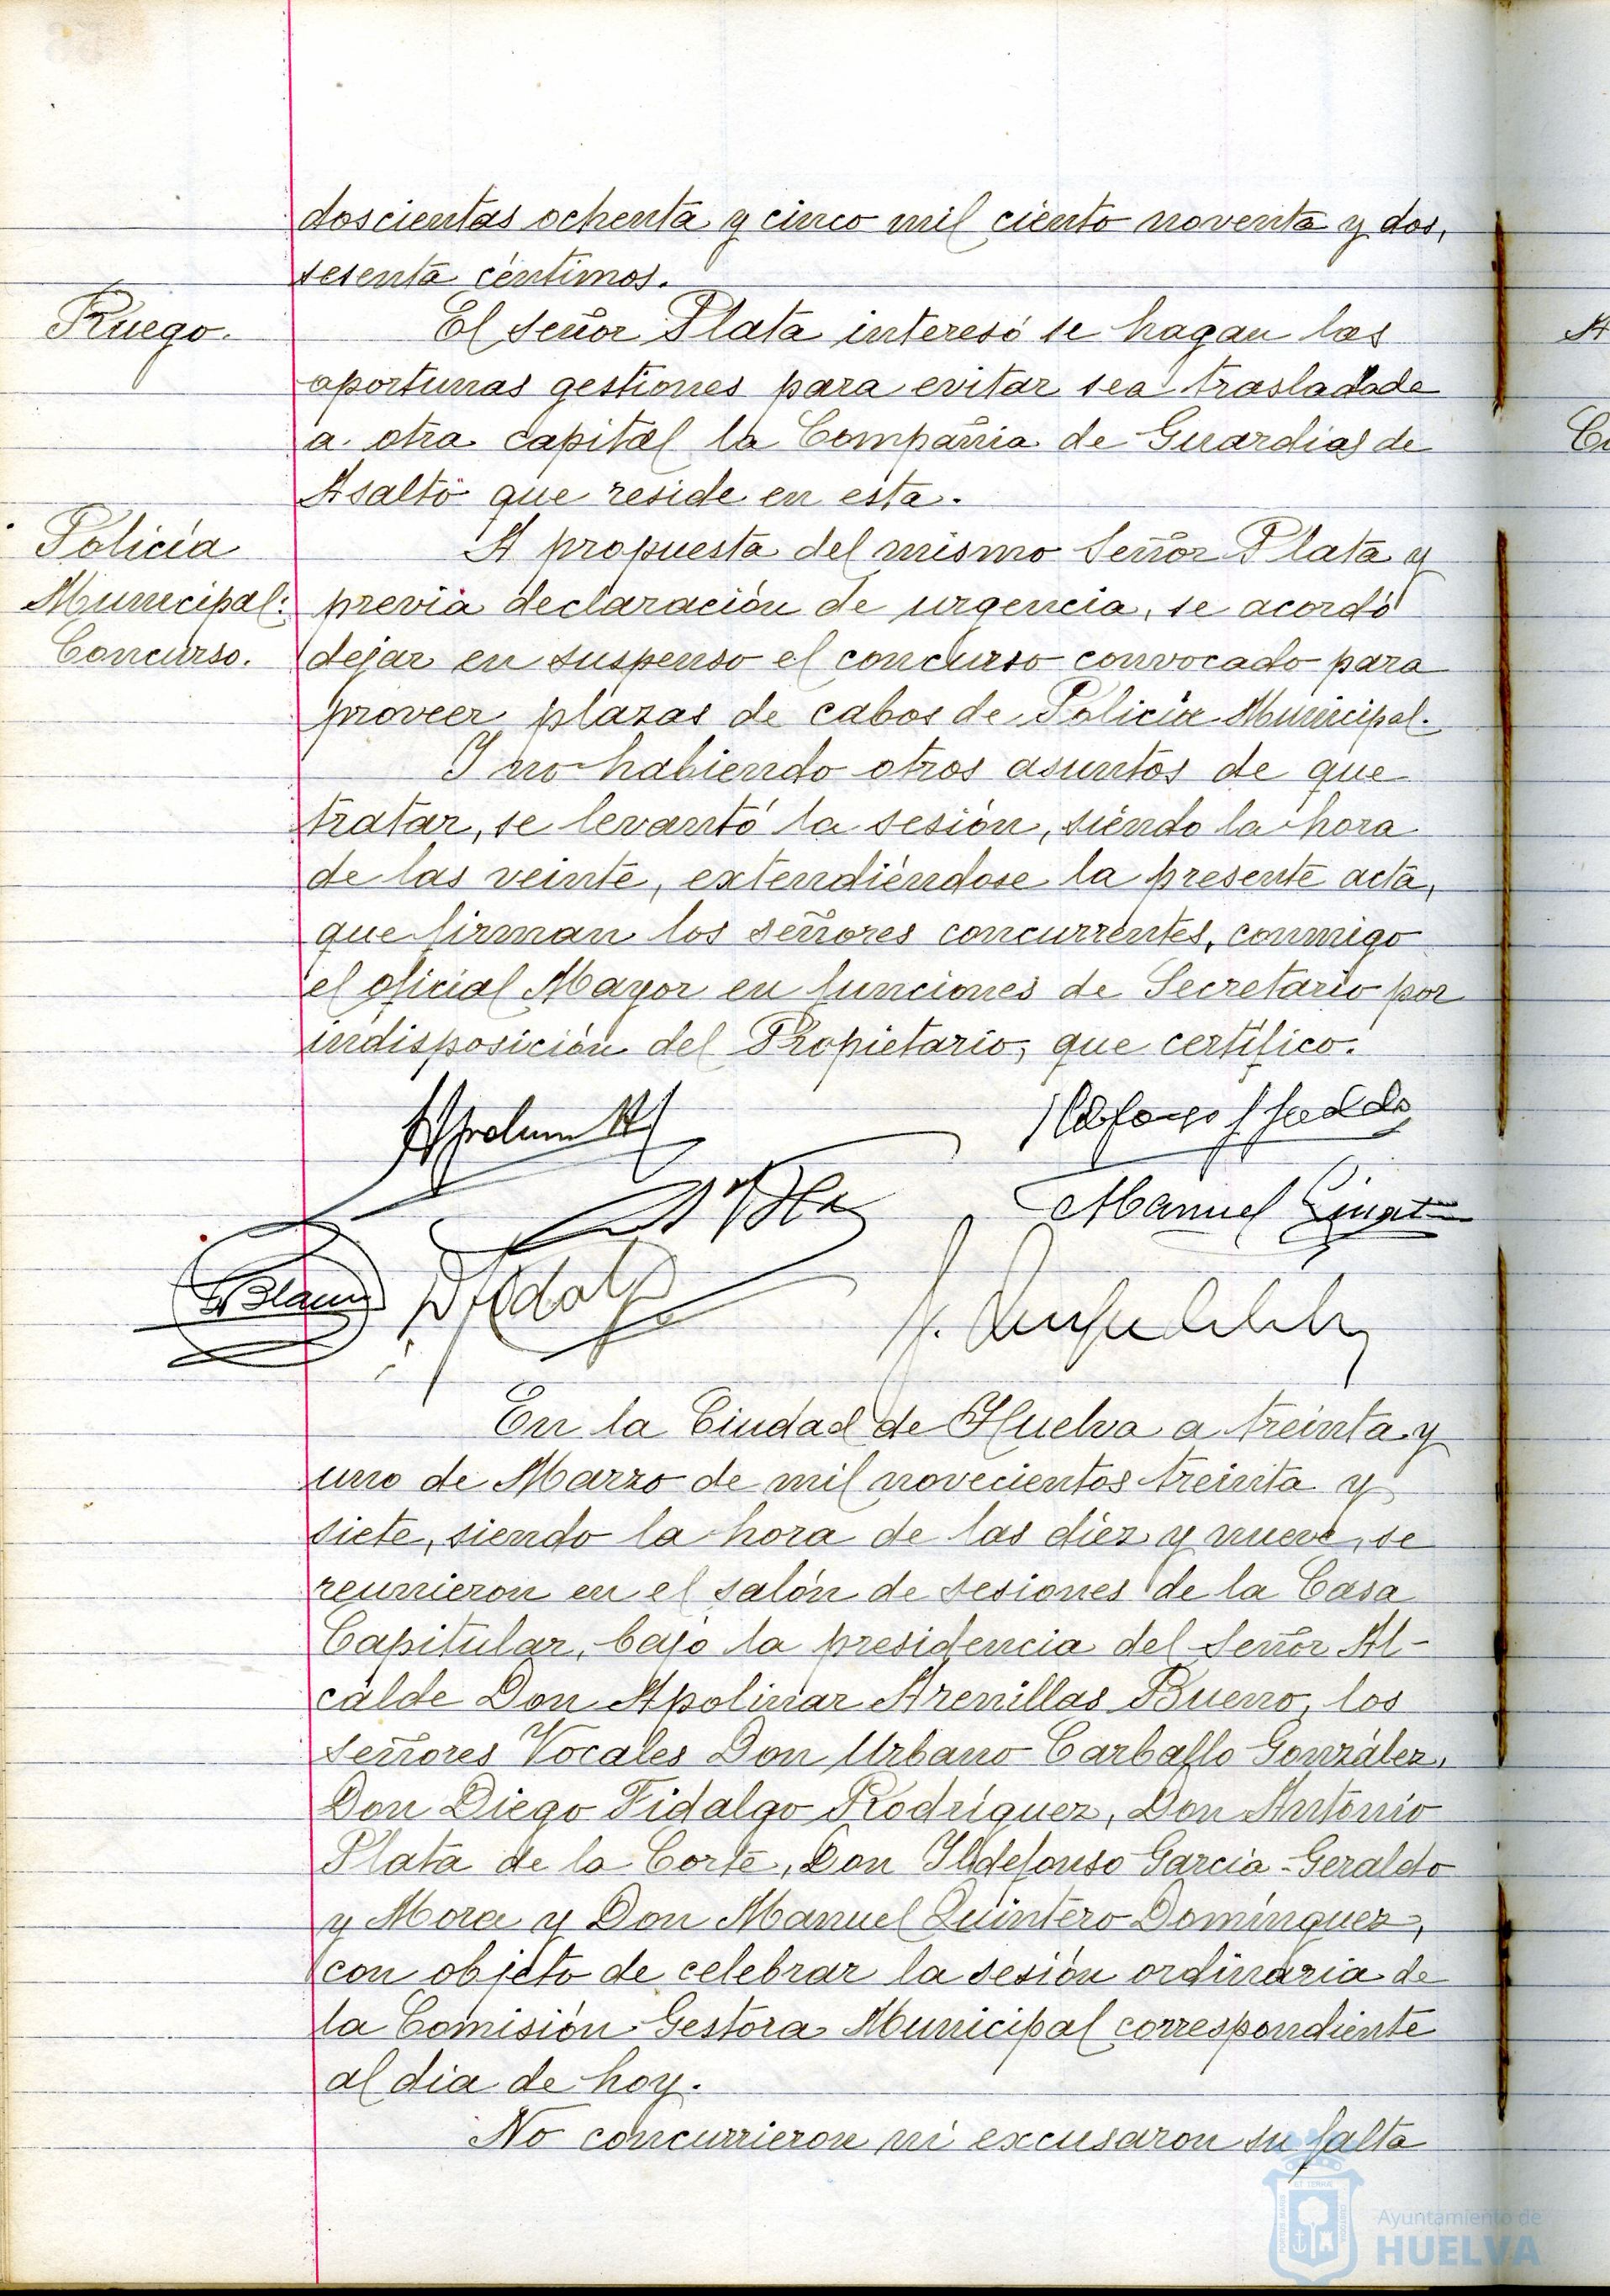 doscientas ochenta y cinco mil ciento noventa y dos,
sesenta céntimos.
Ruego.
El señor Plata interesó se hagan las
oportunas gestiones para evitar sea trasladada
a otra capital la Compañia de Guardias de
Asalto que reside en esta.
Policía
Municipal:
Concurso.
A propuesta del mismo Señor Plata y
previa declaración de urgencia, se acordó
dejar en suspenso el concurso convocado para
proveer plazas de cabos de Policia Municipal.
Y no habiendo otros asuntos de que
tratar, se levantó la sesión, siendo la hora
de las veinte, extendiéndose la presente acta,
que firman los señores concurrentes, conmigo
el oficial Mayor en funciones de Secretario por
indisposición del Propietario, que certifico.
Manuel
En la Ciudad de Huelva a treinta y
uno de Marzo de mil novecientos treinta y
siete, siendo la hora de las diez y nueve, se
reunieron en el salón de sesiones de la Casa
Capitular, bajo la presidencia del Señor Al-
calde Don Apolinar Arenillas Bueno, los
señores Vocales Don Urbano Carballo González,
Don Diego Fidalgo Rodríguez, Don Antonio
Plata de la Corte, Don Ildefonso Garcia-Geraldo
y Mora y Don Manuel Quintero Domínguez,
con objeto de celebrar la sesión ordinaria de
la Comisión Gestora Municipal correspondiente
al dia de hoy.
No concurrieron ni excusaron su falta
Ayuntamiento de
HUELVA